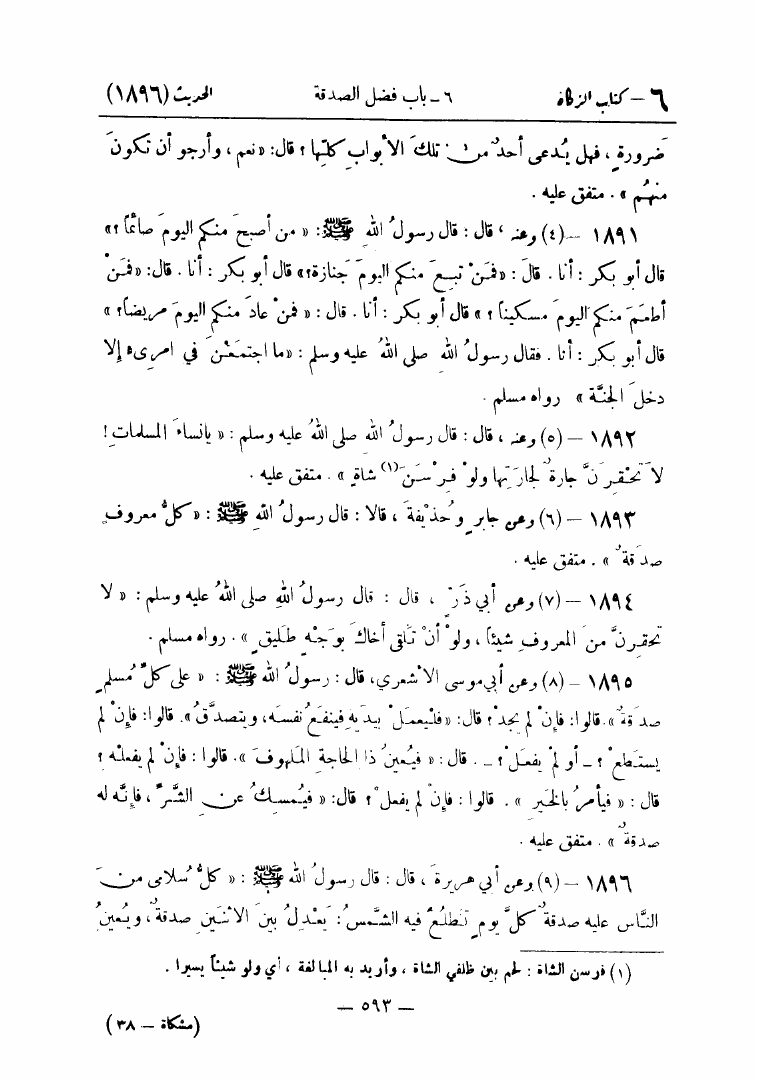 ٦ – كتاب الزكاة ٦ ـ باب فضل الصدقة الحديث (١٨٩٦)
ضَرورةٍ ، فهل يُدعى أحدٌ من تلكَ الأبوابِ كلِّها ؟ قال: «نعم ، وأرجو أن تكونَ
منهُم » . متفق عليه .
١٨٩١ – (٤) وعنه ، قال : قال رسولُ اللهِ ﷺ: « من أصبحَ منكم اليومَ صائماً ؟»
قال أبو بكر : أنا . قالَ : «فمَنْ تبِعَ منكم اليومَ جَنازة؟» قال أبو بكر : أنا . قال: «فمَنْ
أطعَمَ منكم اليومَ مسكيناً ؟ » قال أبو بكر : أنا . قال : « فمنْ عادَ منكم اليومَ مريضاً؟ »
قال أبو بكر : أنا . فقال رسولُ اللهِ صلى اللهُ عليه وسلم : «ما اجتمَعْنَ في امرىءٍ إلا
دخلَ الجنَّة » رواه مسلم .
١٨٩٢ – (٥) وعنه ، قال : قال رسولُ اللهِ صلى اللهُ عليه وسلم : « يانساءَ المسلماتِ !
لا تَحْقِرَنَّ جارةٌ لجارَتِها ولوْ فِرْسَنَ(١) شاةٍ » . متفق عليه .
١٨٩٣ – (٦) وعن جابرٍ وحُذيْفةَ ، قالا : قال رسولُ اللهِ ﷺ : «كلُّ معروفٍ
صدَقةٌ » . متفق عليه .
١٨٩٤ – (٧) وعن أبي ذَرّ ، قال : قال رسولُ اللهِ صلى اللهُ عليه وسلم : « لا
تحقِرنَّ منَ المعروفِ شيئاً ، ولوْ أنْ تَلقى أخاكَ بوَجْهٍ طَليقٍ » . رواه مسلم .
١٨٩٥ – (٨) وعن أبي موسى الأشعري، قال : رسولُ الله ﷺ : « على كلِّ مُسلمٍ
صدَقةٌ ».قالوا: فإنْ لم يجدْ ؟ قال: «فلْيعملْ بيدَيهِ فينفَعُ نفسَه، ويتصدَّقُ ». قالوا: فإنْ لم
يستَطعْ ؟ ـ أو لمْ يفعَلْ ؟ ـ . قال : « فيُعينُ ذا الحاجةِ المَلهوفَ ». قالوا : فإنْ لم يفعلْه ؟
قال : « فيأمرُ بالخَيرِ » . قالوا : فإنْ لم يفعلْ ؟ قال: « فيُمسِكُ عن الشَّرِّ ، فإنَّه له
صدقةٌ » . متفق عليه .
١٨٩٦ – (٩) وعن أبي هريرةَ ، قال : قال رسولُ اللهِ ﷺ : « كلُّ سُلامى منَ
النَّاس عليه صدقةٌ كلَّ يومٍ تطلُعُ فيه الشَّمسُ: يَعْدِلُ بينَ الاثنَينِ صدقةٌ، ويُعينُ
(١) فرسن الشاة : لحم بين ظلفي الشاة ، وأريد به المبالغة ، أي ولو شيئاً يسيرا .
— ٥٩٣ —
(مشكاة – ٣٨)